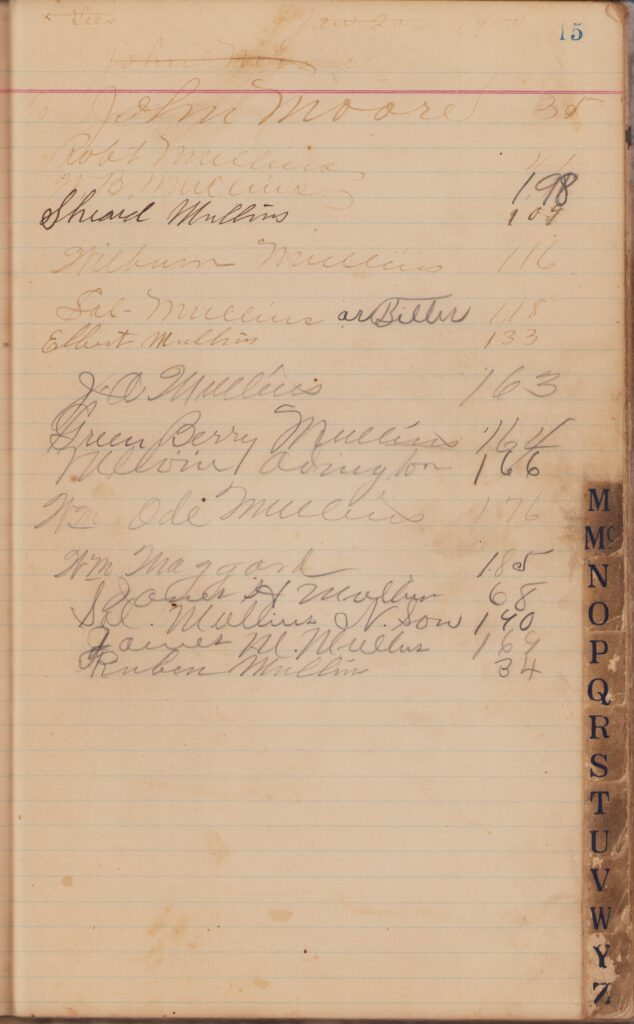 Jan 20 1900
15
John Moore
John Moore 35
Robt Mullins
W B Mullins 198
Sheard Mullins 109
Wilburn Mullins 116
Sol - Mullins or Biller 118
Elbert Mullins 133
J. A Mullins 163
Green Berry Mullins 164
Melvin Ovington 166
Wm Ode Mullins 176
Wm Maggard 185
James H Mullin 68
Sol. Mullins N. Son 140
James M. Mullins 169
Ruben Mullin 34
M
Mc
N
O
P
Q
R
S
T
U
V
W
Y
Z